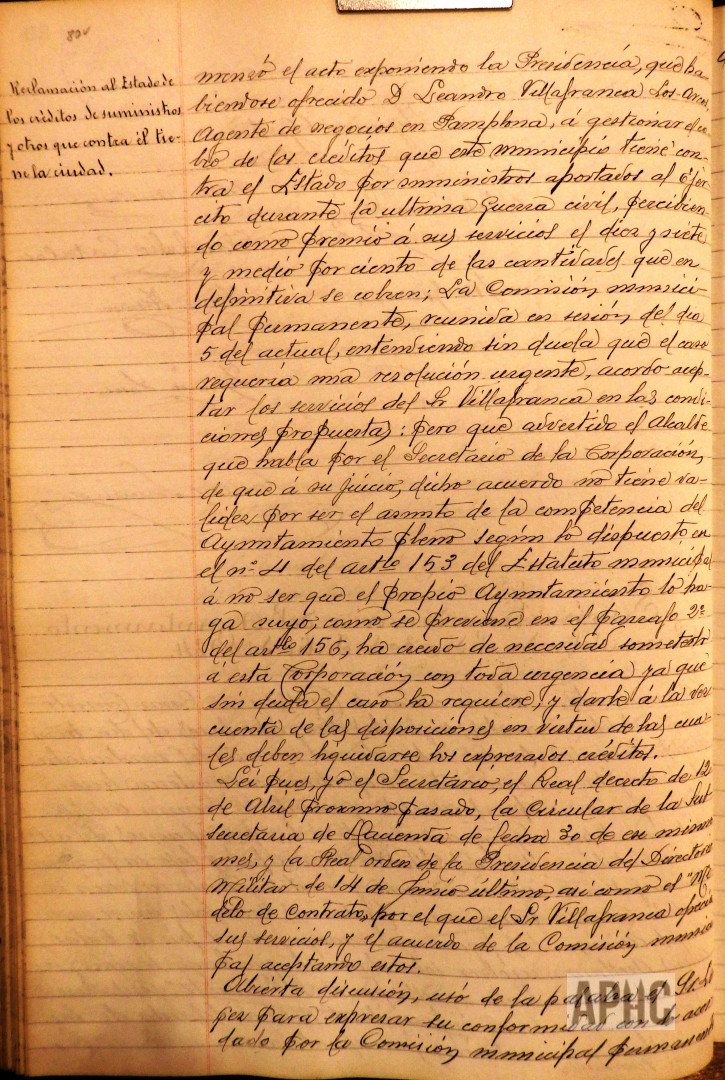 80v
Reclamación al Estado de
los créditos de suministros
y otros que contra él tie-
ne la ciudad.
menzó el acto exponiendo la Presidencia, que ha-
biendose ofrecido D Leandro Villafranca Los-Arcos,
Agente de negocios en Pamplona, á gestionar el co-
bro de los créditos que este municipio tiene con-
tra el Estado por suministros aportados al Ejér-
cito durante la ultima Guerra civil, percibien-
do como premio á sus servicios el diez y siete
y medio por ciento de las cantidades que en
definitiva se cobren; La Comisión munici-
pal permanente, reunida en sesión del dia
5 del actual, entendiendo sin duda que el caso
requeria una resolución urgente, acordo acep-
tar los servicios del Sr Villafranca en las condi-
ciones propuestas: pero que advertido el Alcalde
que habla por el Secretario de la Corporación,
de que á su juicio, dicho acuerdo no tiene va-
lidez por ser el asunto de la competencia del
Ayuntamiento pleno según lo dispuesto en
el nº 4 del artlo 153 del Estatuto municipal
á no ser que el propio Ayuntamiento lo ha-
ga suyo, como se previene en el parrafo 2º
del artlo 156, ha creido de necesidad someterlo
a esta Corporación con toda urgencia ya que
sin duda el caso ha requiere, y darle á la vez
cuenta de las disposiciones en virtud de las cua-
les deben liquidarse los expresados créditos.
Leí pues, yo el Secretario, el Real decreto de 12
de Abril próximo pasado, la Circular de la Sub
secretaria de Hacienda de fecha 30 de ese mismo
mes, y la Real orden de la Presidencia del Directorio
Militar de 14 de Junio último, asi como el "Mo
delo de contrato, por el que el Sr Villafranca ofrecía
sus servicios, y el acuerdo de la Comisión munici
pal aceptando estos.
Abierta discusión, usó de la palabra el Sr Lo
pez para expresar su conformidad con lo acor
dado por la Comisión municipal permanente
APHC